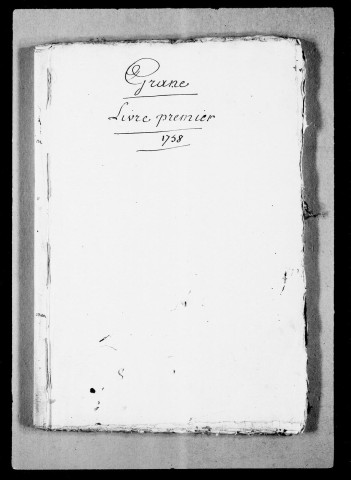 Grane
Livre premier
1758